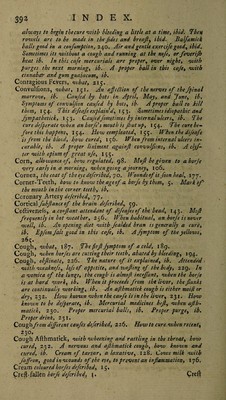 392 INDEX.
always to begin the cure with bleeding a little at a time, ibid. Then
rowels are to be made in the sides and breast, ibid. Balsamick
balls good in a consumption, 240. Air and gentle exercise good, ibid.
Sometimes its without a cough and running at the nose, or feverish
heat ib. In this case mercurials are proper, over night, with
purges the next morning, ib. A proper ball in this case, with
cinnabar and gum guaicum, ib.
Contagious Fevers, what, 215.
Convulsions, what, 151. An affection of the nerves of the spinal
marrow, ib. Caused by bots in April, May, and June, ib.
Symptoms of convulsion caused by bots, ib. A proper ball to kill
them, 152. This disease explained, 153. Sometimes idiopathic and
sympathetick, 153. Caused sometimes by internal ulcers, ib. The
cure desperate when an horse's mouth is shut up, 154. The cure be-
fore this happens, 154. How complicated, 155. When the disease
is from the blood, how cured, 156. When from internal ulcers in-
curable, ib. A proper liniment against convulsions, ib. A clys-
ter with opium of great use, 155.
Corn, allowance of, how regulated, 98. Must be given to a horse
very early in a morning, when going a journey, 106.
Cornea, the coat of the eye described, 70. Wounds of it soon heal, 177.
Corner-Teeth, how to know the age of a horse by them, 5. Mark of
the mouth in the corner teeth, ib.
Coronary Artery described, 77.
Cortical substance of the brain described, 59.
Costiveness, a constant attendant of diseases of the head, 143. Most
frequently in hot weather, 256. When habitual, an horse is never
well, ib. An opening diet with scalded bran is generally a cure,
ib. Epsom salt good in this case, ib. A symptom of the yellows,
265.
Cough, what, 187. The first symptom of a cold, 189.
Cough, when horses are cutting their teeth, abated by bleeding, 194.
Cough, obstinate, 226. The nature of it explained, ib. Attended
with weakness, loss of appetite, and wasting of the body, 229. In
a vomica of the lungs, the cough is almost incessant, when the horse
is at hard work, ib. When it proceeds from the liver, the stands
are continually working, ib. An asthmatick cough is either moist or
dry, 232. How known when the cause is in the liver, 252. How
known to be desperate, ib. Mercurial medicines best, when asth-
matick, 230. Proper mercurial balls, ib. Proper purge, ib.
Proper drink, 251.
Cough from different causes described, 226. How to cure when recent,
230.
Cough Asthmatick, with wheezing and rattling in the throat, how
cured, 232. A nervous and asthmatick cough, how known and
cured, ib. Cream of tartar, a laxative, 128. Cows milk with
saffron, good in wounds of the eye, to prevent an inflammation, 176.
Cream coloured horses described, 15.
Crest-fallen horse described, 3.
Crest